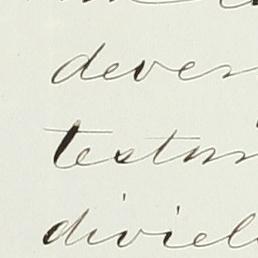 dever
testam
divid